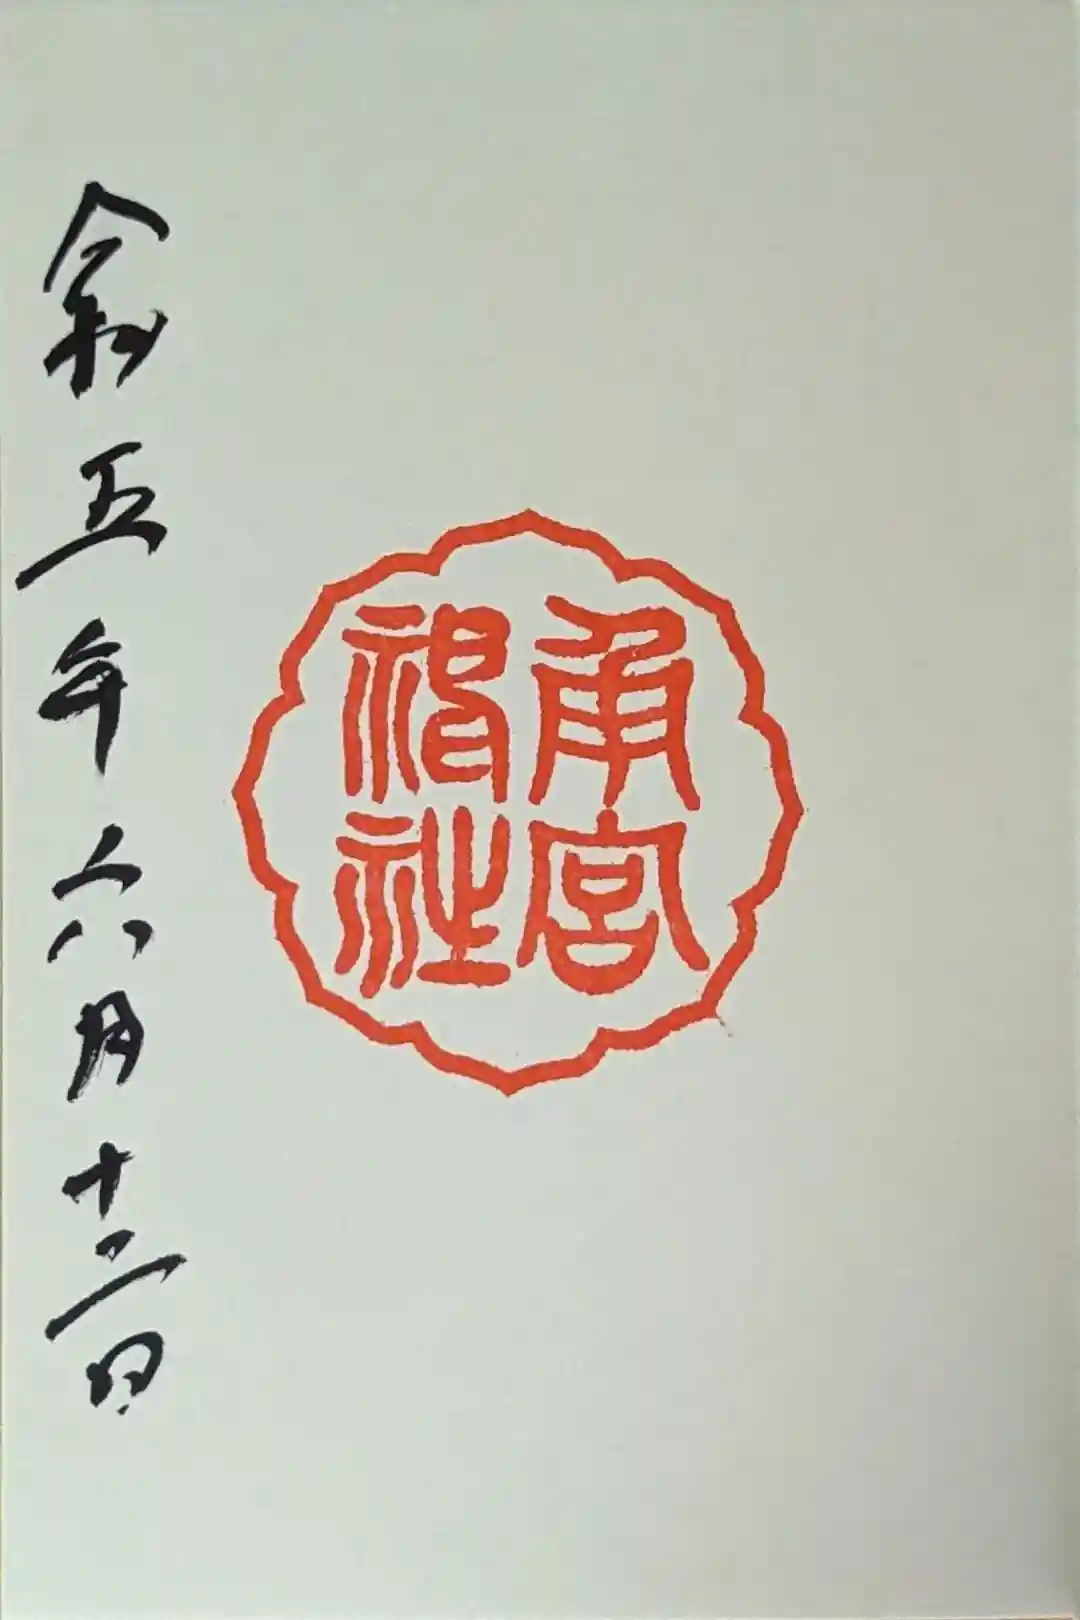 角宮
神社
令和五年六月十二日